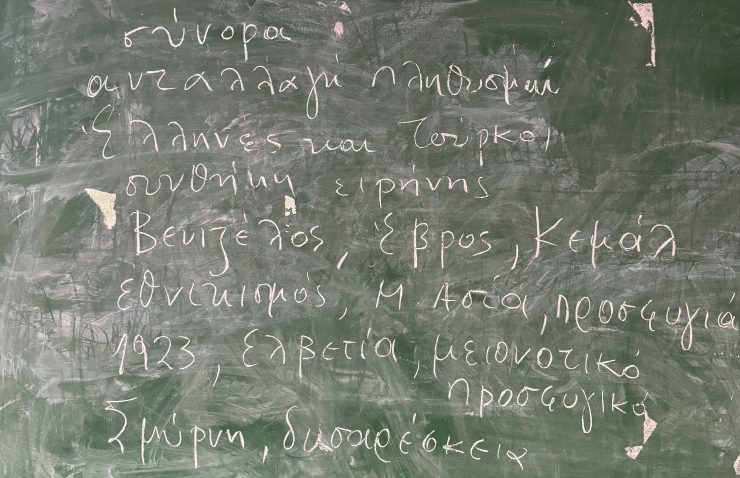 σύνορα
ανταλλαγή πληθυσμών
Έλληνες και Τούρκοι
συνθήκη ειρήνης
Βενιζέλος, Έβρος, Κεμάλ
εθνικισμός, Μ Ασία, προσφυγιά
1923, Ελβετία, μειονοτικό
προσφυγικό
Σμύρνη, δυσαρέσκεια